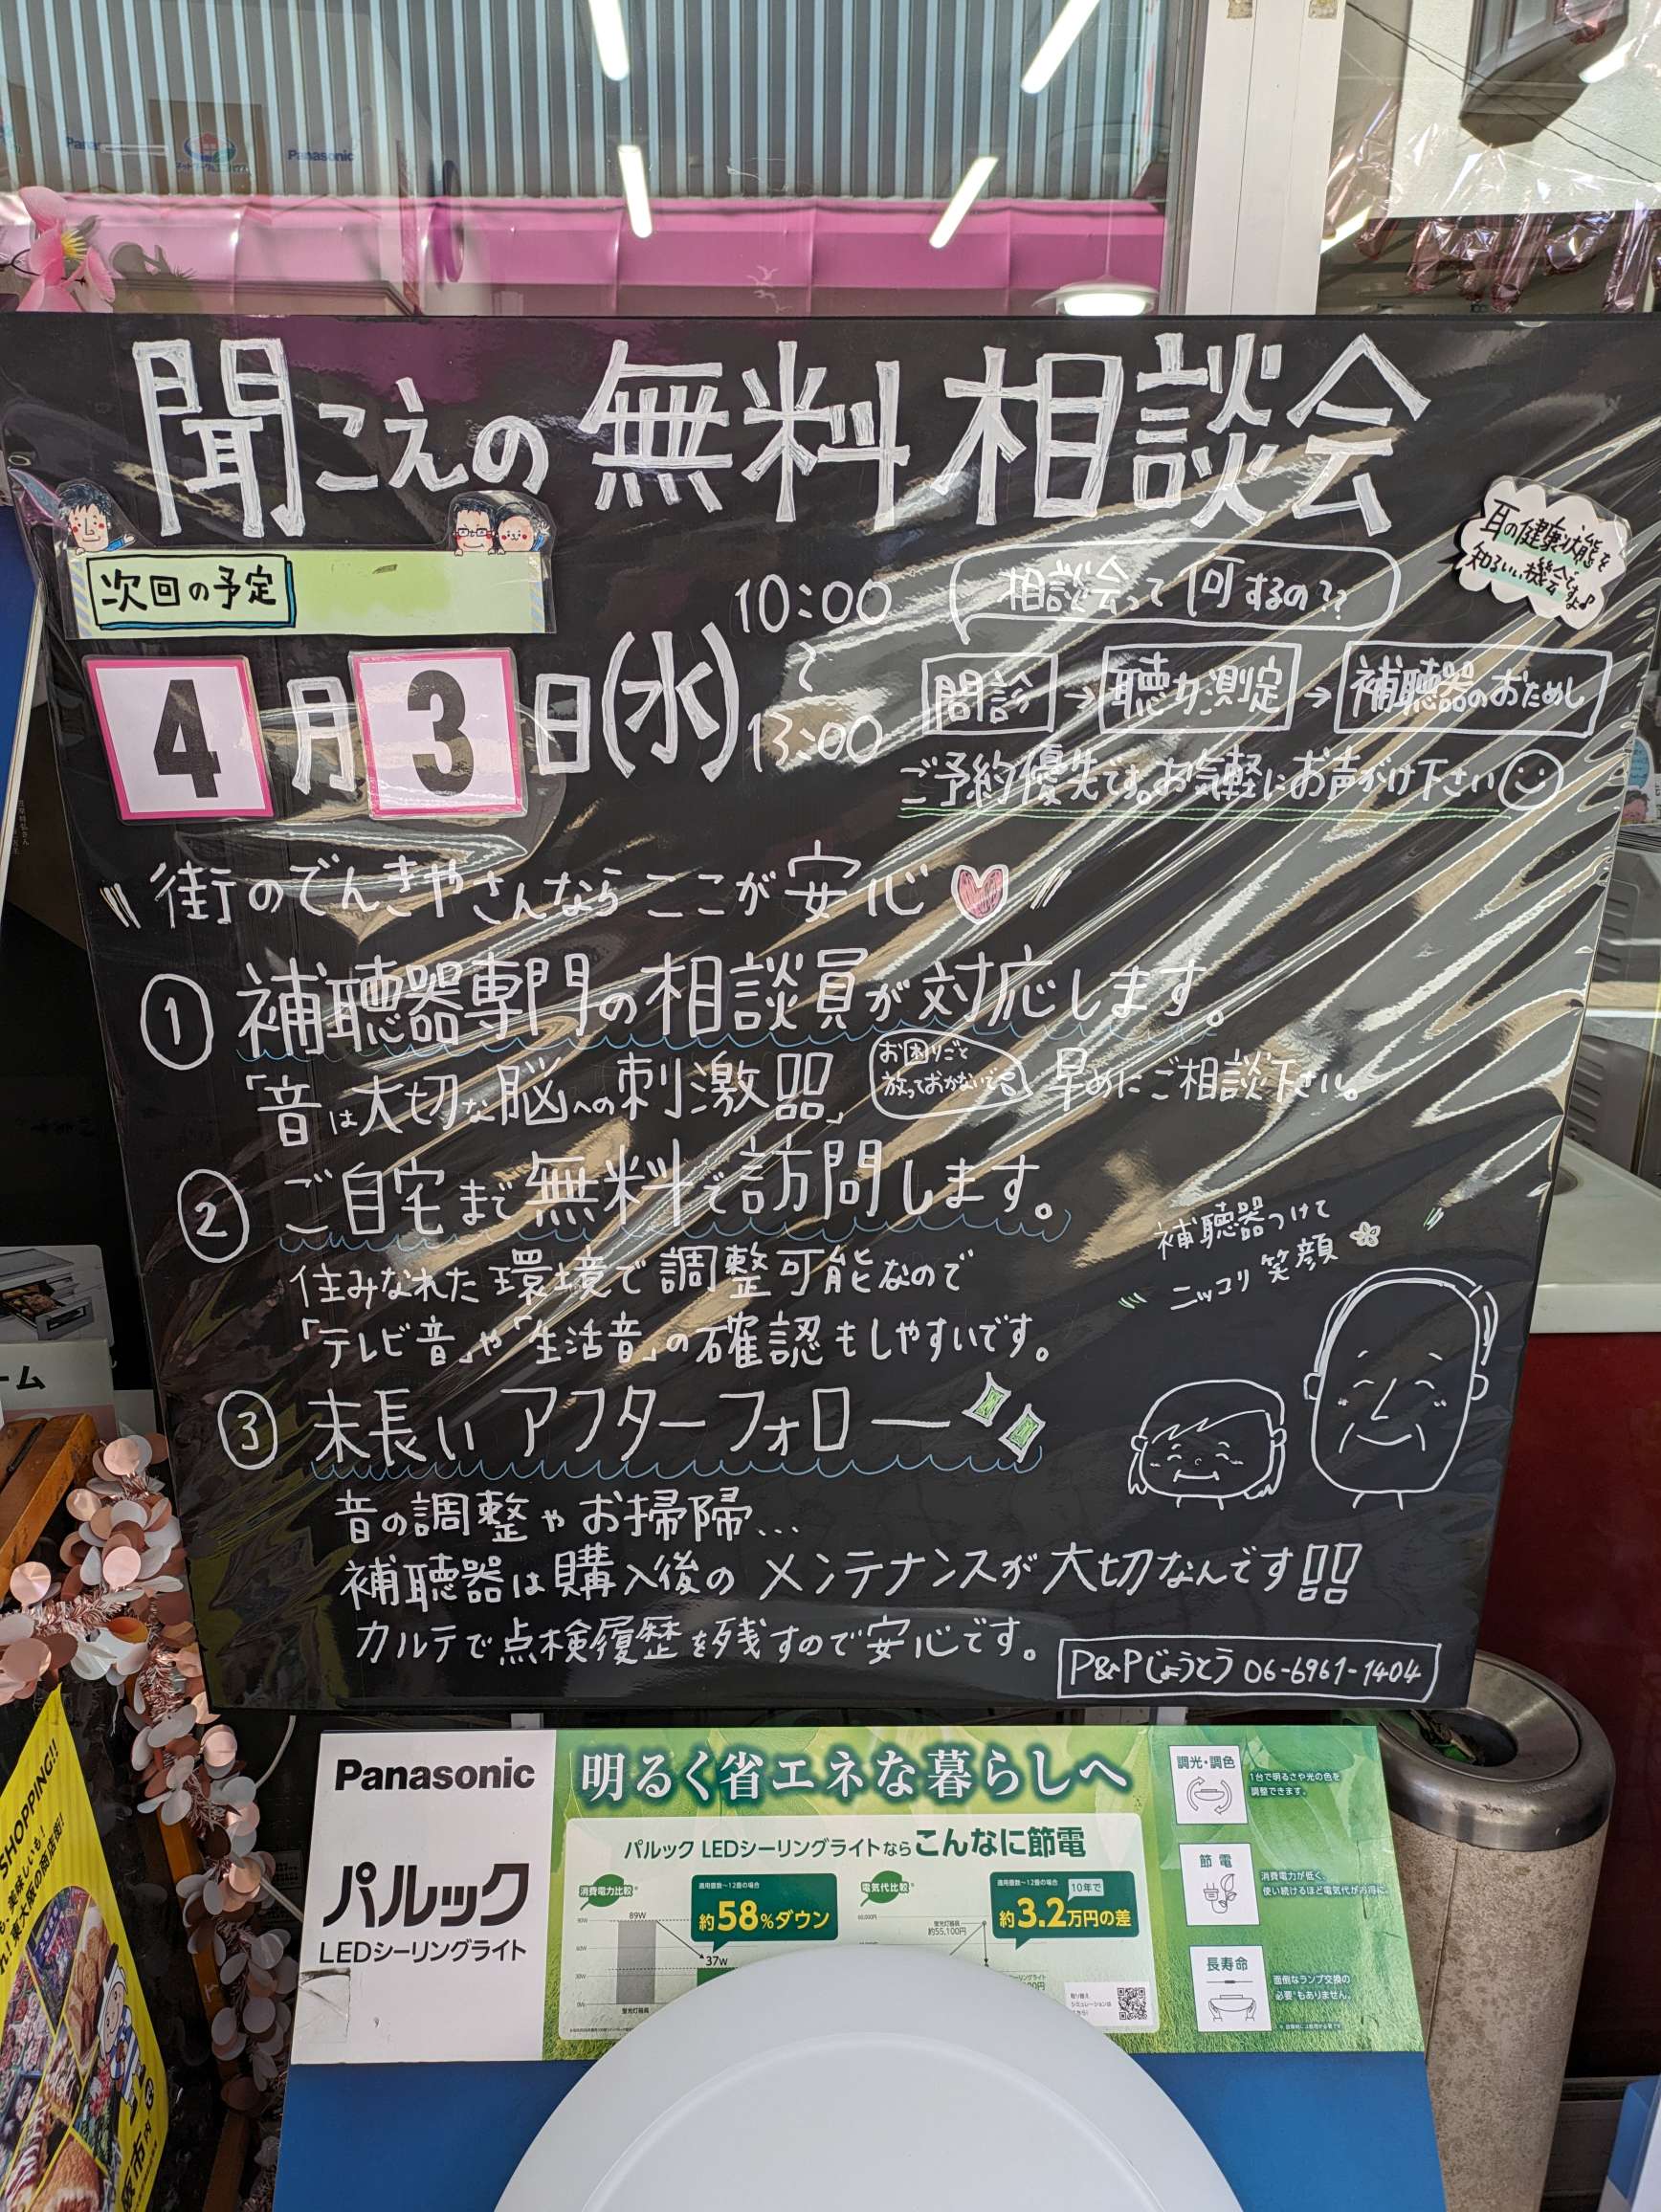 Panasonic
聞こえの無料相談会
耳の健康状態を
知るいい機会ですよ♪
次回の予定
4月3日(水)
10:00
〜
13:00
相談会って何するの??
問診→聴力測定→補聴器のおためし
ご予約優先です。お気軽にお声がけ下さい
街のでんきやさんならここが安心
① 補聴器専門の相談員が対応します。
「音は大切な脳への刺激!!」
お困りごと
放っておかないで
早めにご相談下さい。
② ご自宅まで無料で訪問します。
住みなれた環境で調整可能なので
「テレビ音」や「生活音」の確認もしやすいです。
補聴器つけて
ニッコリ笑顔
③ 末長いアフターフォロー
音の調整やお掃除...
補聴器は購入後のメンテナンスが大切なんです!!
カルテで点検履歴を残すので安心です。
P&Pじょうとう 06-6961-1404
Panasonic
パルック
LEDシーリングライト
明るく省エネな暮らしへ
パルック LEDシーリングライトならこんなに節電
消費電力比較
適用畳数〜12畳の場合
約58%ダウン
89W
37w
蛍光灯器具
電気代比較
適用畳数〜12畳の場合
10年で
約3.2万円の差
蛍光灯器具
約55,100円
調光・調色
1台で明るさや光の色を
調整できます。
節電
消費電力が低く、
使い続けるほど電気代がお得に。
長寿命
面倒なランプ交換の
必要もありません。
SHOPPING!!